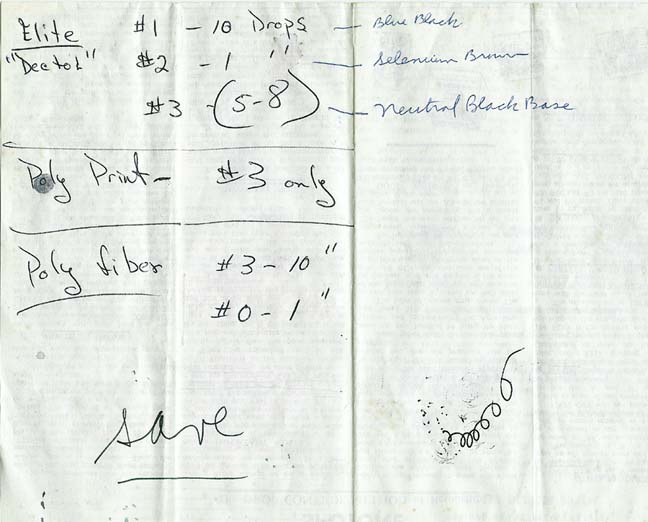 Elite #1 - 10 Drops — Blue Black
"Dectol" #2 - 1 " — Selenium Brown
#3 - (5-8) — Neutral Black Base
Poly Print - #3 only
Poly fiber #3 - 10 "
#0 - 1 "
save